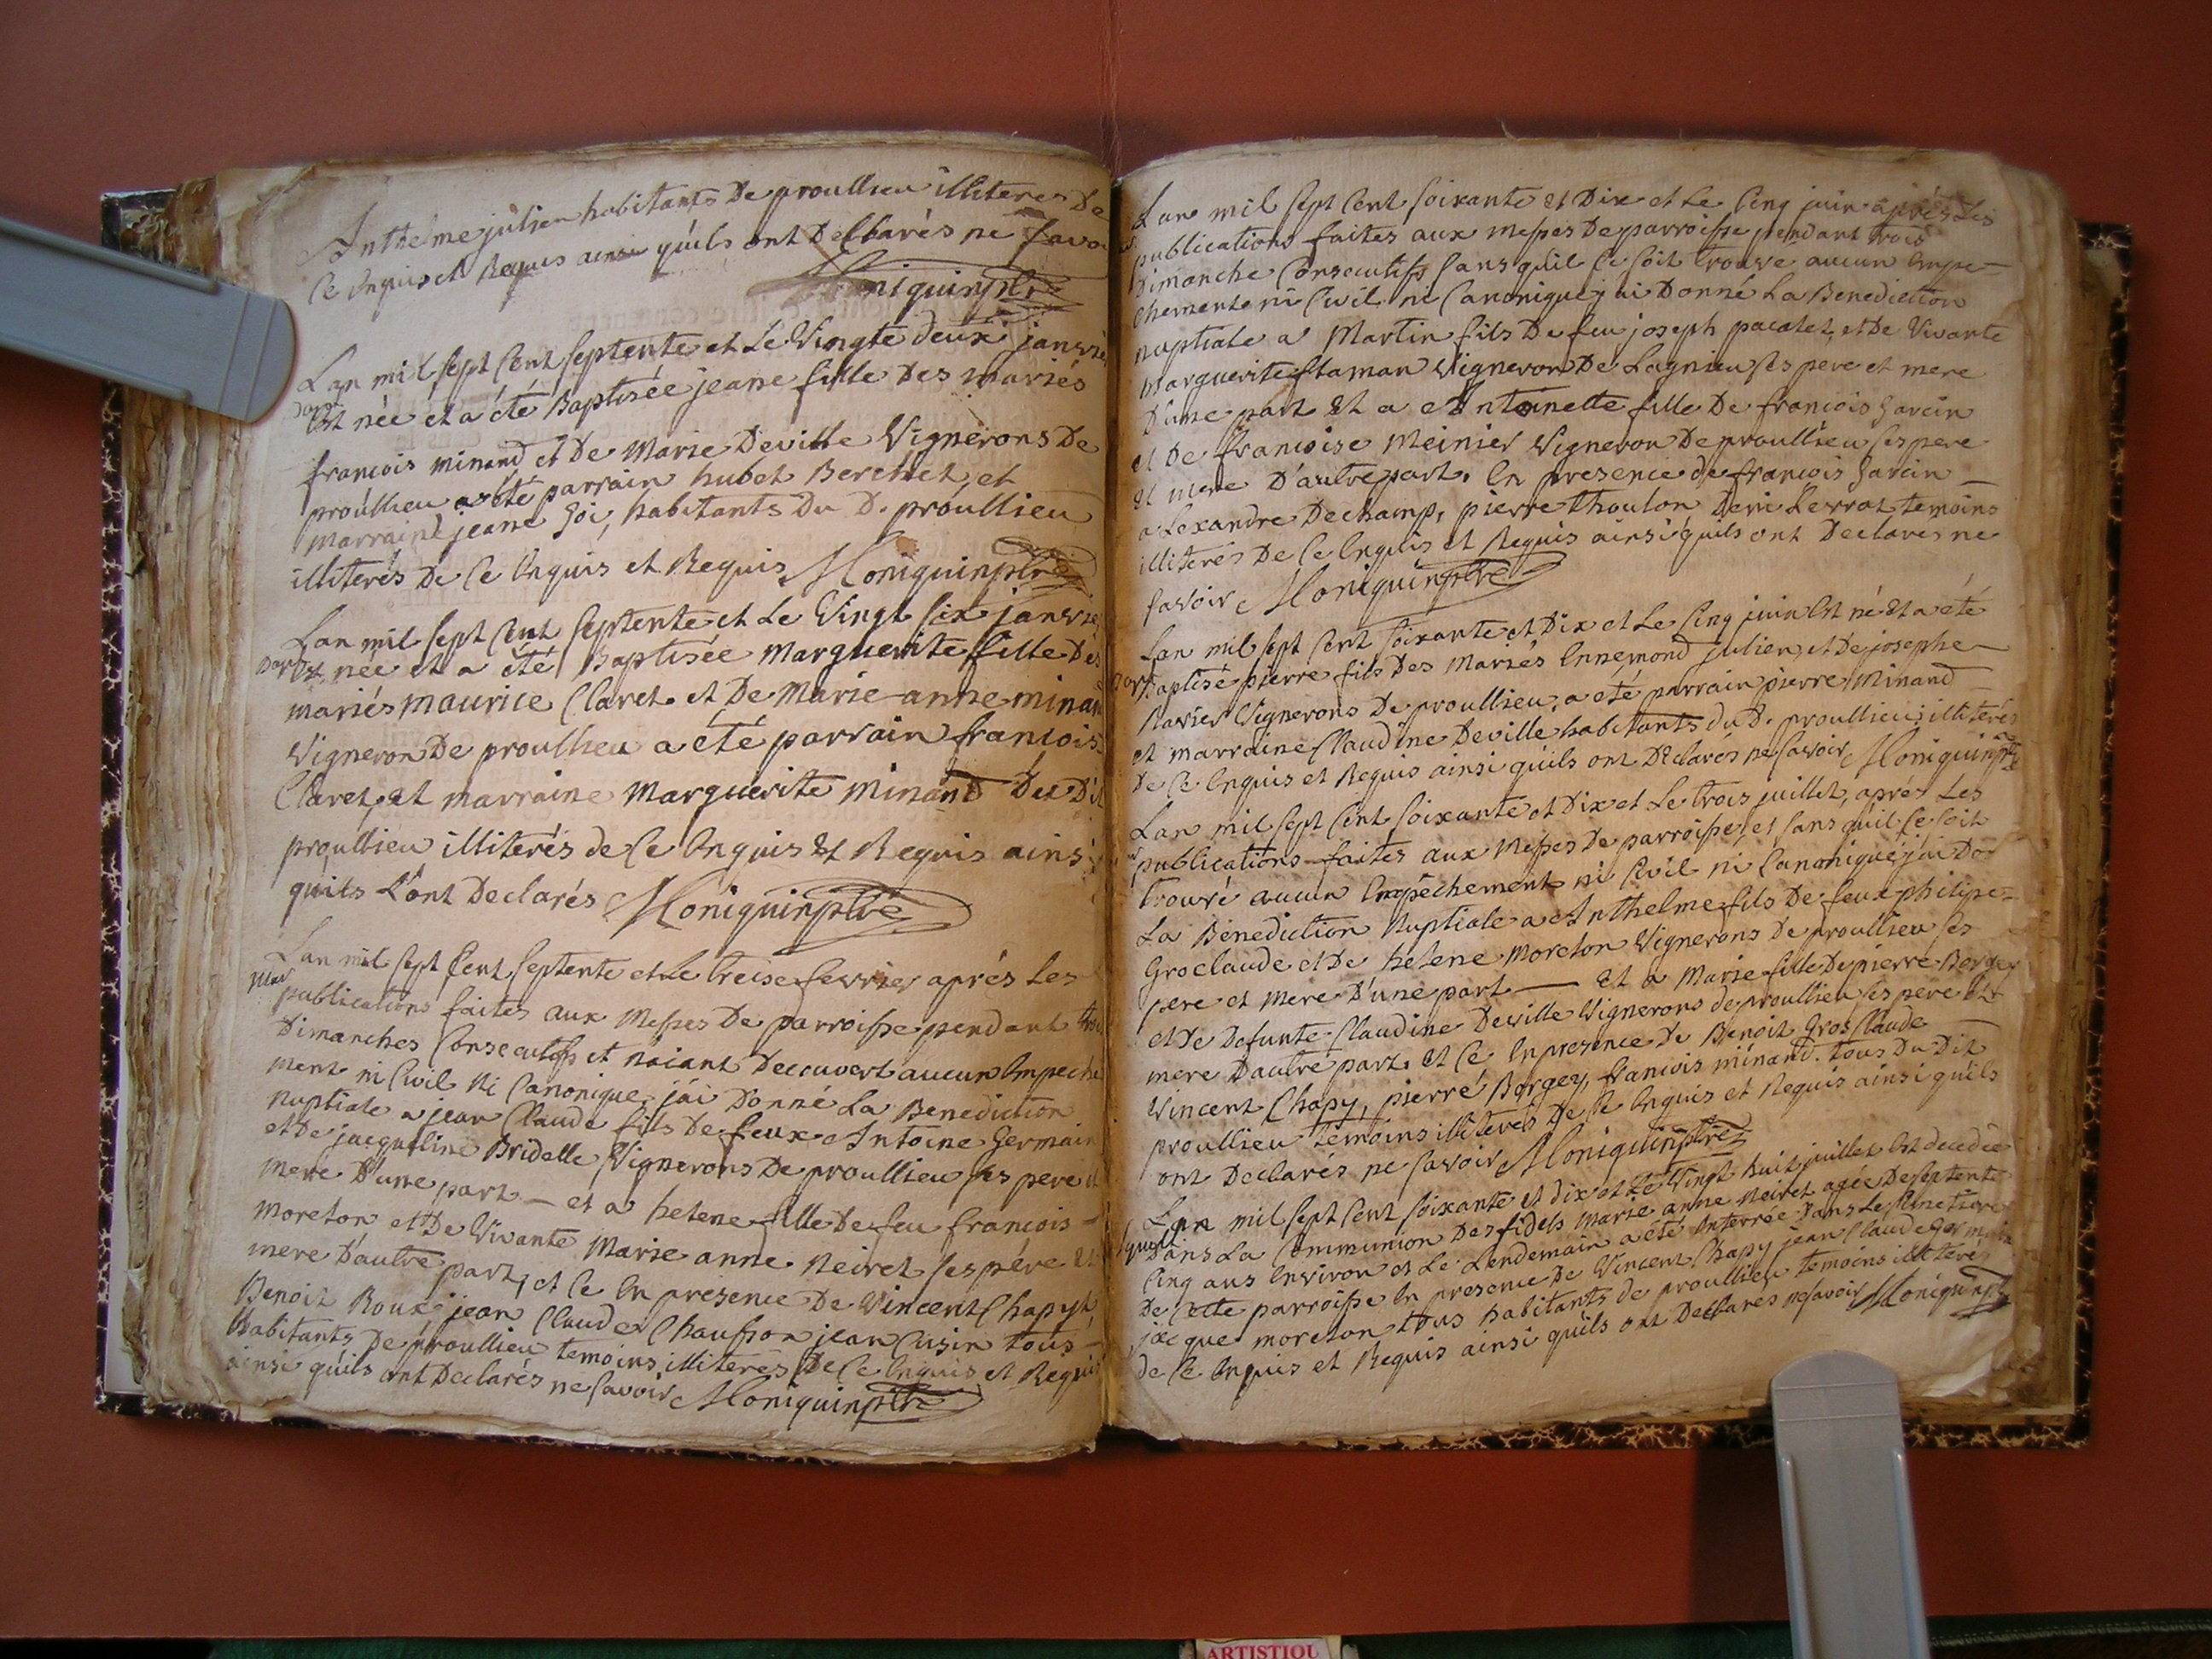 Anthéme julien habitants De proullieu illiteres De
Ce Enquis et Requis ainsi qu'ils ont Declarés ne Savoi
Moniquin ptre
Lan mil sept Cent septente et Le Vingte deux janvie
Est née et a été Baptisée jeane fille Des mariés
francois minand et De Marie Deville Vignerons De
proullieu a été parrain hubet Berchet, et
marraine jeane Goi, habitants Du D. proullieu
illiterés De Ce Enquis et Requis Moniquin ptre
Lan mil sept Cent septente et Le Vingt six janvie
Bap Est née et a été Baptisée Marguerite fille Des
mariés maurice Claret et De Marie anne minan
Vigneron De proullieu a été parrain francois
Claret, et marraine Marguerite Minand Du Dit
proullieu illiterés de Ce Enquis Et Requis ainsi
quils L'ont Declarés Moniquin ptre
Lan mil sept Cent septente et Le treise fevrier aprés Les
Mar publications faites aux Messes De parroisse pendant troi
Dimanches Consecutifs et n'aiant Decouvert aucun Empeche
ment ni Civil Ni Canonique, j'ai Donné La Benediction
nuptiale a jean Claude fils De feux Antoine Germain
et De jacqueline Bridelle Vignerons De proullieu ses pere et
mere D'une part — et a helene fille De feu francois –
moreton et De Vivante Marie anne Neiret ses pére Et
mere D'autre part, et Ce En presence De Vincent Chapy
Benoit Roux jean Claude Chausson jean Cusin tous –
habitants De proullieu temoins illiterés De Ce Enquis et Requis
ainsi qu'ils ont Declarés ne Savoir Moniquin ptre
Lan mil sept Cent soixante et Dix et Le Cinq juin aprés Les
publications faites aux messes De parroisse pendant trois
Dimanche Consecutifs sans qu'il se soit trouve aucun Empe–
chement ni Civil ni Canonique j'ai Donné La Benediction
nuptiale a Martin fils De feu joseph pacalet, et De Vivante
marguerite flaman Vigneron De Lagnieu ses pere et mere
D'une part Et a Antoinette fille De francois Garcin
et De francoise Meinier Vigneron De proullieu ses pere
et mere D'autre part. En presence de francois Garcin –
alexandre Dechamp, pierre thoulon Deni Perrot temoins
illiterés De Ce Enquis et Requis ainsi qu'ils ont Declarés ne
savoir Moniquin ptre
Lan mil sept Cent soixante et Dix et Le Cinq juin Est né Et a été
Bap Baptisé pierre fils Des Mariés Ennemond julien, et De josephe –
Ravier Vignerons De proullieu, a été parrain pierre Minand
et marraine Claudine Deville habitants du D. proullieu, illiterés
De Ce Enquis et Requis ainsi qu'ils ont Déclarés ne savoir Moniquin ptre
Lan mil sept Cent soixante et Dix et Le trois juillet, aprés Les
publications faites aux Messes De parroisse, et sans qu'il se soit
trouvé aucun Empéchement ni Civil ni Canonique, j'ai Do
La Bénediction Nuptiale a Anthelme fils De feux philipe
Groclaude et De helene Moreton Vignerons De proullieu ses
pere et mere D'une part — et a Marie fille De pierre Berger
et De Defunte Claudine Deville Vignerons de proullieu ses pere et
mere D'autre part, et Ce En presence De Benoit Grosclaude
Vincent Chapy, pierre Bergey, francois minand. tous Du Dit
proullieu témoins illiterés De Ce Enquis et Requis ainsi qu'ils
ont Declarés ne savoir Moniquin ptre
Lan mil sept Cent soixante et dix et Le Vingt huit juillet Est decedée
Dans La Communion Des fidels Marie anne Neiret agée De septente
Cinq ans Environ et Le Lendemain a été Enterrée Dans Le Cimetiere
De Cette parroisse En presence De Vincent Chapy jean Claude Germain
jacque moreton tous habitants de proullieu temoins illiterés
de Ce Enquis et Requis ainsi qu'ils ont Declarés ne savoir Moniquin ptre
ARTISTIQU